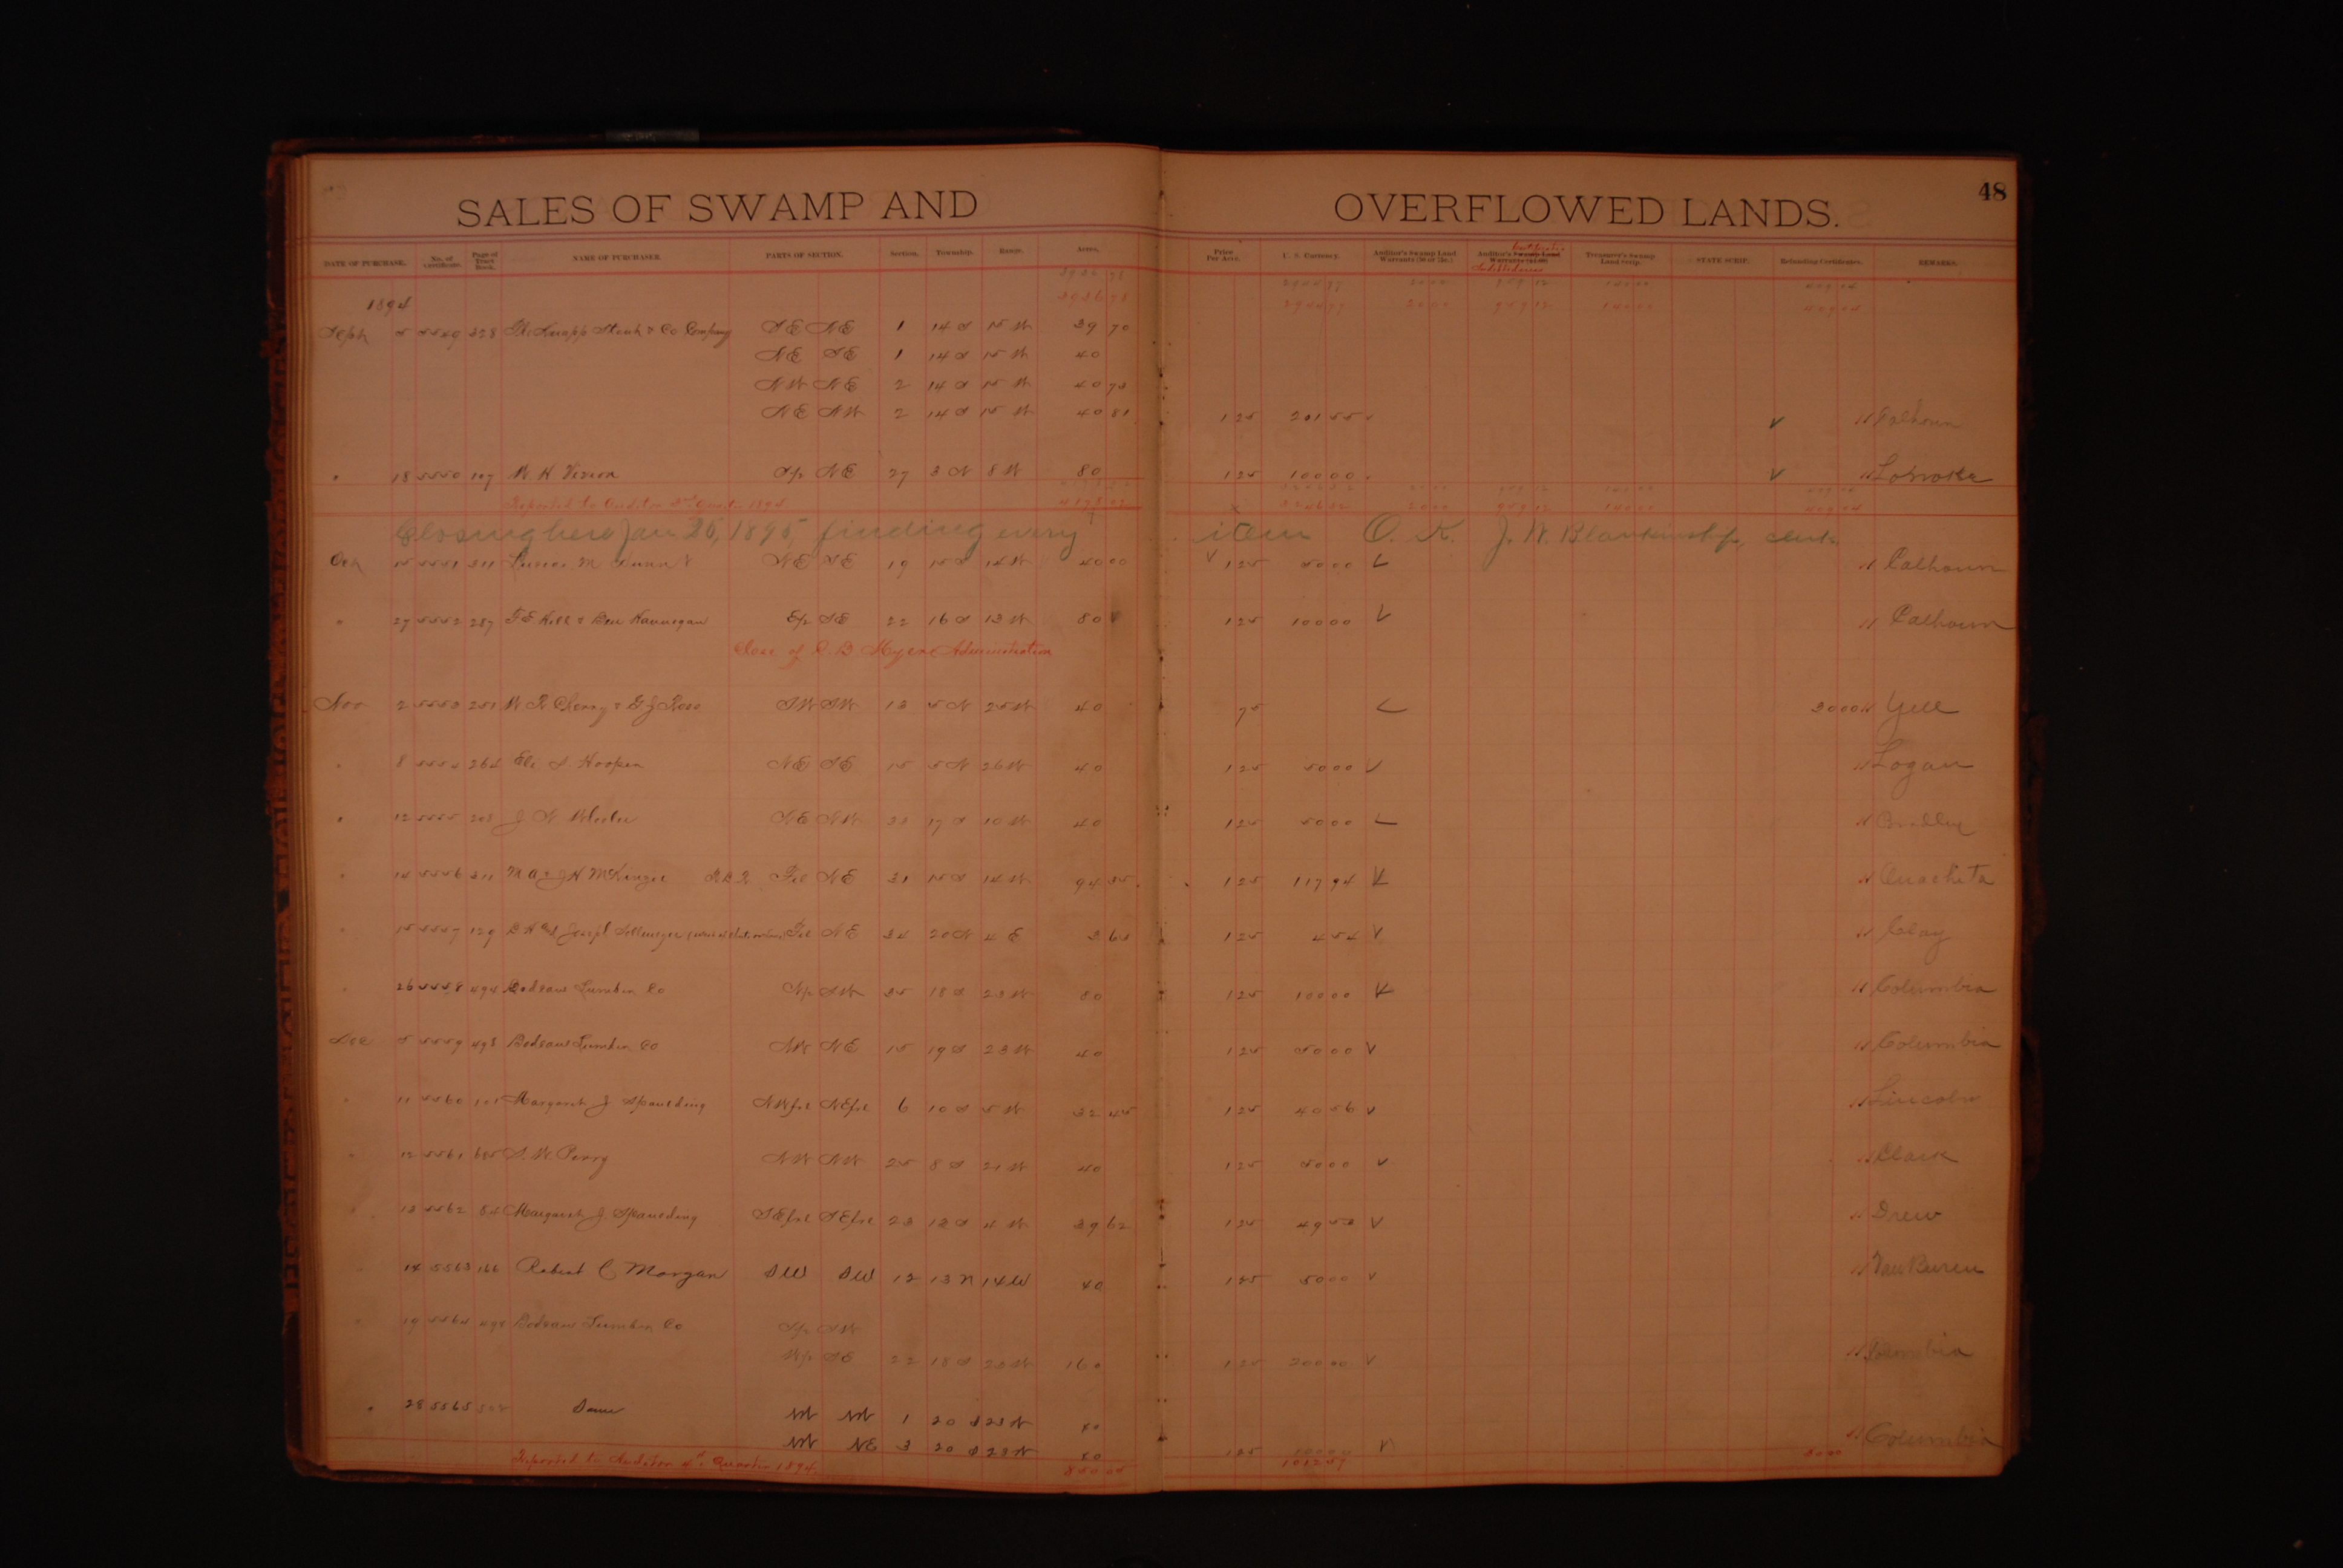 48
SALES OF SWAMP AND OVERFLOWED LANDS.
DATE OF PURCHASE. No. of Certificate. Page of Tract Book. NAME OF PURCHASER. PARTS OF SECTION. Section. Township. Range. Acres. Price Per Acre. U. S. Currency. Auditor's Swamp Land Warrants Auditor's Swamp Land Warrants Treasurer's Swamp Land Scrip. STATE SCRIP. Refunding Certificates. REMARKS.
2944 77 20 00 959 12 140 00 409 04
1894 3936 78 2944 77 20 00 959 12 140 00 409 04
Sept 5 5549 328 The Knapp Stout & Co Company SE NE 1 14 S 15 W 39 70
NE SE 1 14 S 15 W 40
NW NE 2 14 S 15 W 40
NE NW 2 14 S 15 W 40 81 1 25 201 55 Calhoun
" 18 5550 107 W. H. NE 27 3 N 8 W 80 1 25 100 00 Lonoke
Reported to Auditor 3rd Quarter 1894 3246 32 20 00 959 12 140 00 409 04
Closing here Jan 25, 1895, finding every item O. K. J. W. Blankinship, clerk
Oct 15 5551 311 M NE SE 19 15 S 14 W 40 00 1 25 50 00 Calhoun
" 27 5552 287 T E Hill & Ben Hannegan SE 22 16 S 13 W 80 1 25 100 00 Calhoun
Close of C. B. Myers Administration
Nov 2 5553 251 W R Cherry & G J Ross SW SW 13 5 N 25 W 40 75 30 00 Yell
" 8 5554 264 Eli S Hooper NE SE 15 5 N 26 W 40 1 25 50 00 Logan
" 12 5555 208 J N Wheeler NE NW 33 17 S 10 W 40 1 25 50 00 Bradley
" 14 5556 311 M A & J H McKenzie Frl NE 31 15 S 14 W 94 35 1 25 117 94 Ouachita
" 15 5557 129 Joseph Sellmeyer Frl NE 34 20 N 4 E 3 63 1 25 4 54 Clay
" 26 5558 494 Bodcaw Lumber Co SW 35 18 S 23 W 80 1 25 100 00 Columbia
Dec 5 5559 498 Bodcaw Lumber Co NW NE 15 19 S 23 W 40 1 25 50 00 Columbia
" 11 5560 101 Margaret J Spaulding NWfrl NEfrl 6 10 S 5 W 32 45 1 25 40 56 Lincoln
" 12 5561 S. W. Perry NW NW 25 8 S 21 W 40 1 25 50 00 Clark
" 13 5562 84 Margaret J. Spaulding SEfrl SEfrl 23 13 S 4 W 39 62 1 25 49 53 Drew
14 5563 166 Robert C Morgan SW SW 12 13 N 14 W 40 1 25 50 00 Van Buren
" 19 5564 494 Bodcaw Lumber Co SW
SE 22 18 S 23 W 160 1 25 200 00 Columbia
" 28 5565 Same NW NW 1 20 S 23 W 40
NW NE 3 20 S 23 W 40 1 25 100 00 Columbia
Reported to Auditor 4th Quarter 1894. 850 05 1012 57 30 00